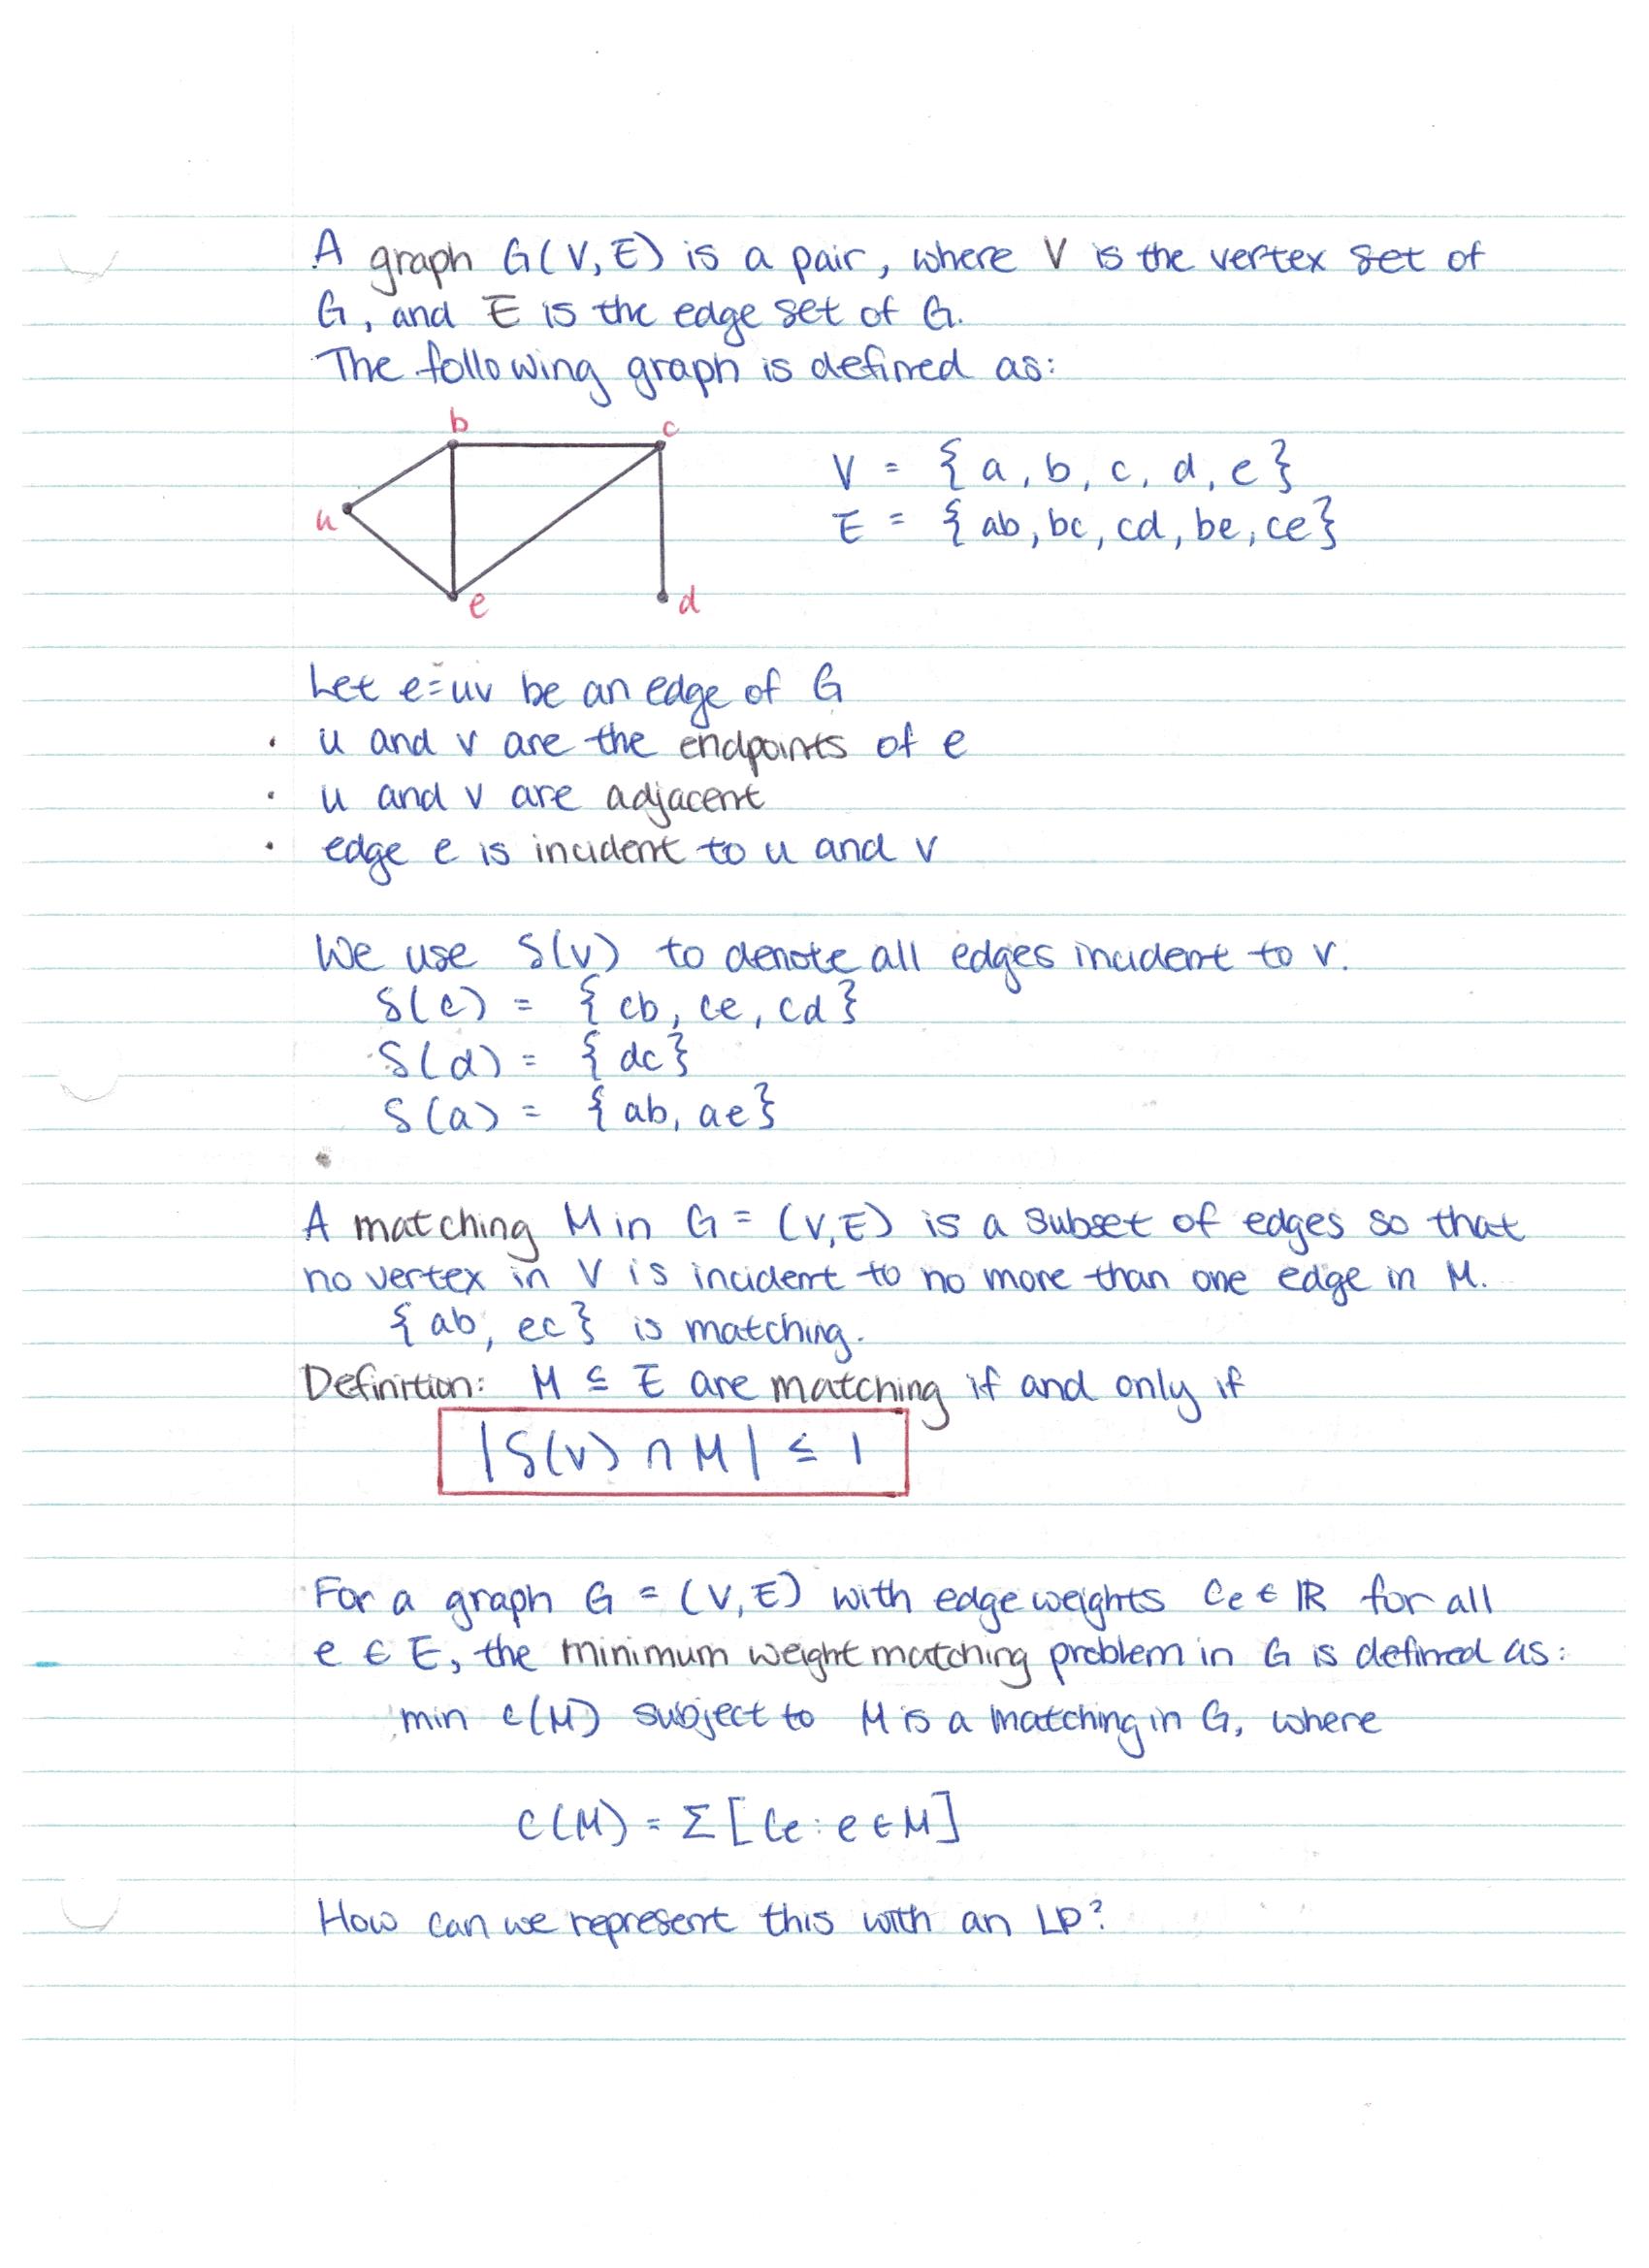 A graph G(V,E) is a pair, where V is the vertex set of
G, and E is the edge set of G.
The following graph is defined as:
b
c
a
e
d
V = {a, b, c, d, e}
E = {ab, bc, cd, be, ce}
Let e=uv be an edge of G
• u and v are the endpoints of e
• u and v are adjacent
• edge e is incident to u and v
We use δ(v) to denote all edges incident to v.
δ(c) = {cb, ce, cd}
δ(d) = {dc}
δ(a) = {ab, ae}
A matching M in G = (V,E) is a subset of edges so that
no vertex in V is incident to no more than one edge in M.
{ab, ec} is matching.
Definition: M ⊆ E are matching if and only if
|δ(v) ∩ M| ≤ 1
For a graph G = (V,E) with edge weights Ce ∈ ℝ for all
e ∈ E, the minimum weight matching problem in G is defined as:
min c(M) subject to M is a matching in G, where
c(M) = Σ[Ce : e ∈ M]
How can we represent this with an LP?